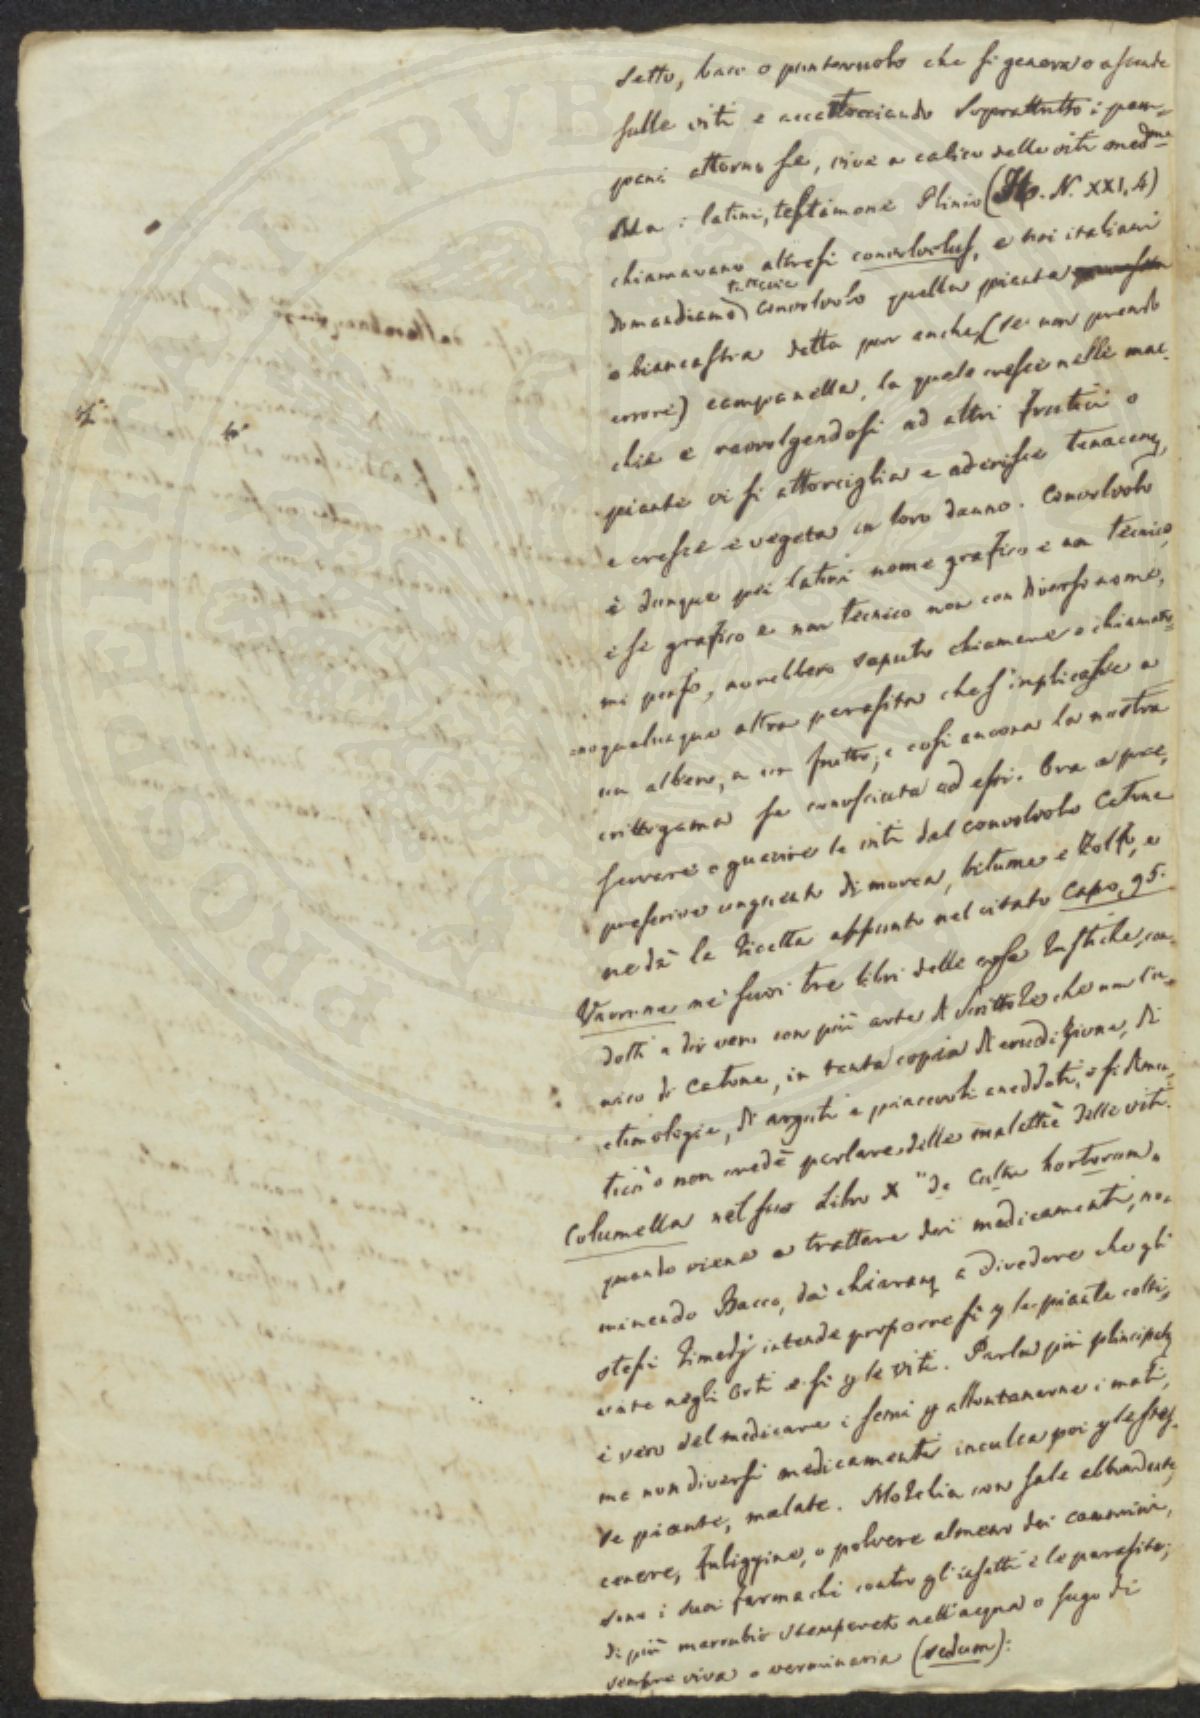 setto, baco o punteruolo che si genera o ascende
sulle viti e accartocciando soprattutto i pam-
pani attorno se, vive a carico delle viti medme
Ma i latini, testimone Plinio (H. N. XXI, 4)
chiamavano altresi convolvolus, e noi italiani
domandiamo tuttavia convolvolo quella pianta
o biancastra detta pur anche (se non prendo
errore) campanella, la quale cresce nelle mac-
chie e ravvolgendosi ad altri frutici o
piante vi si attorciglia e aderisce tenacem,
e cresce e vegeta in loro danno. Convolvolo
è dunque poi latini nome grafico e non tecnico,
e se grafico e non tecnico non con diverso nome,
mi penso, avrebbero saputo chiamare o chiamato
qualunque altra parasita che s'inplicasse a
un albero, a un frutto, e cosi ancora la nostra
crittogama se conosciuta ad essi. Ora a pre-
servare o guarire le viti dal convolvolo Catone
prescrive unguento di morca, bitume e zolfo, e
ne dà la ricetta appunto nel citato Capo, 95.
Varrone ne' suoi tre libri delle cose rustiche, con-
dotti a dir vero con più arte di scrittore che non l'u-
nico di Catone, in tanta copia di erudizione, di
etimologie, di arguti e piacevoli aneddoti, o si dimen-
ticò o non credè parlare delle malattie delle viti.
Columella nel suo Libro X "de Cultu hortorum"
quando viene a trattare dei medicamenti, no-
minando Bacco, dà chiaram a divedere che gli
stessi rimedj intende proporre sì p le piante colti-
vate negli orti e sì p le viti. Parla più principalm
è vero del medicare i semi p allontanarne i mali,
ma non diversi medicamenti inculca poi p le stes-
se piante, malate. Morchia con sale abbondante,
cenere, fuliggine, o polvere almeno dei cammini,
sono i suoi farmachi contro gl'insetti e le parasite;
di più marrubio stemperato nell'acqua o sugo di
sempre viva o verminaria (sedum):